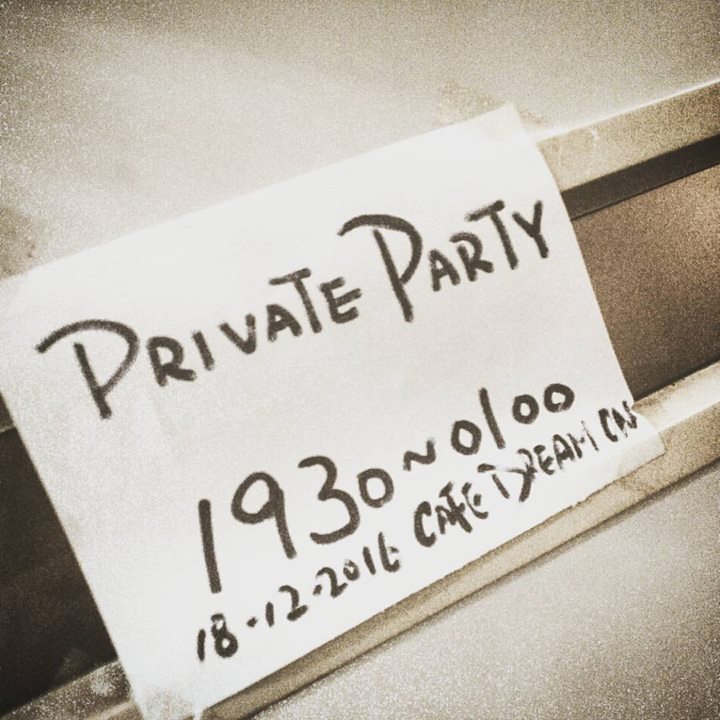 PRIVATE PARTY
1930~0100
18-12-2016 CAFE DREAM